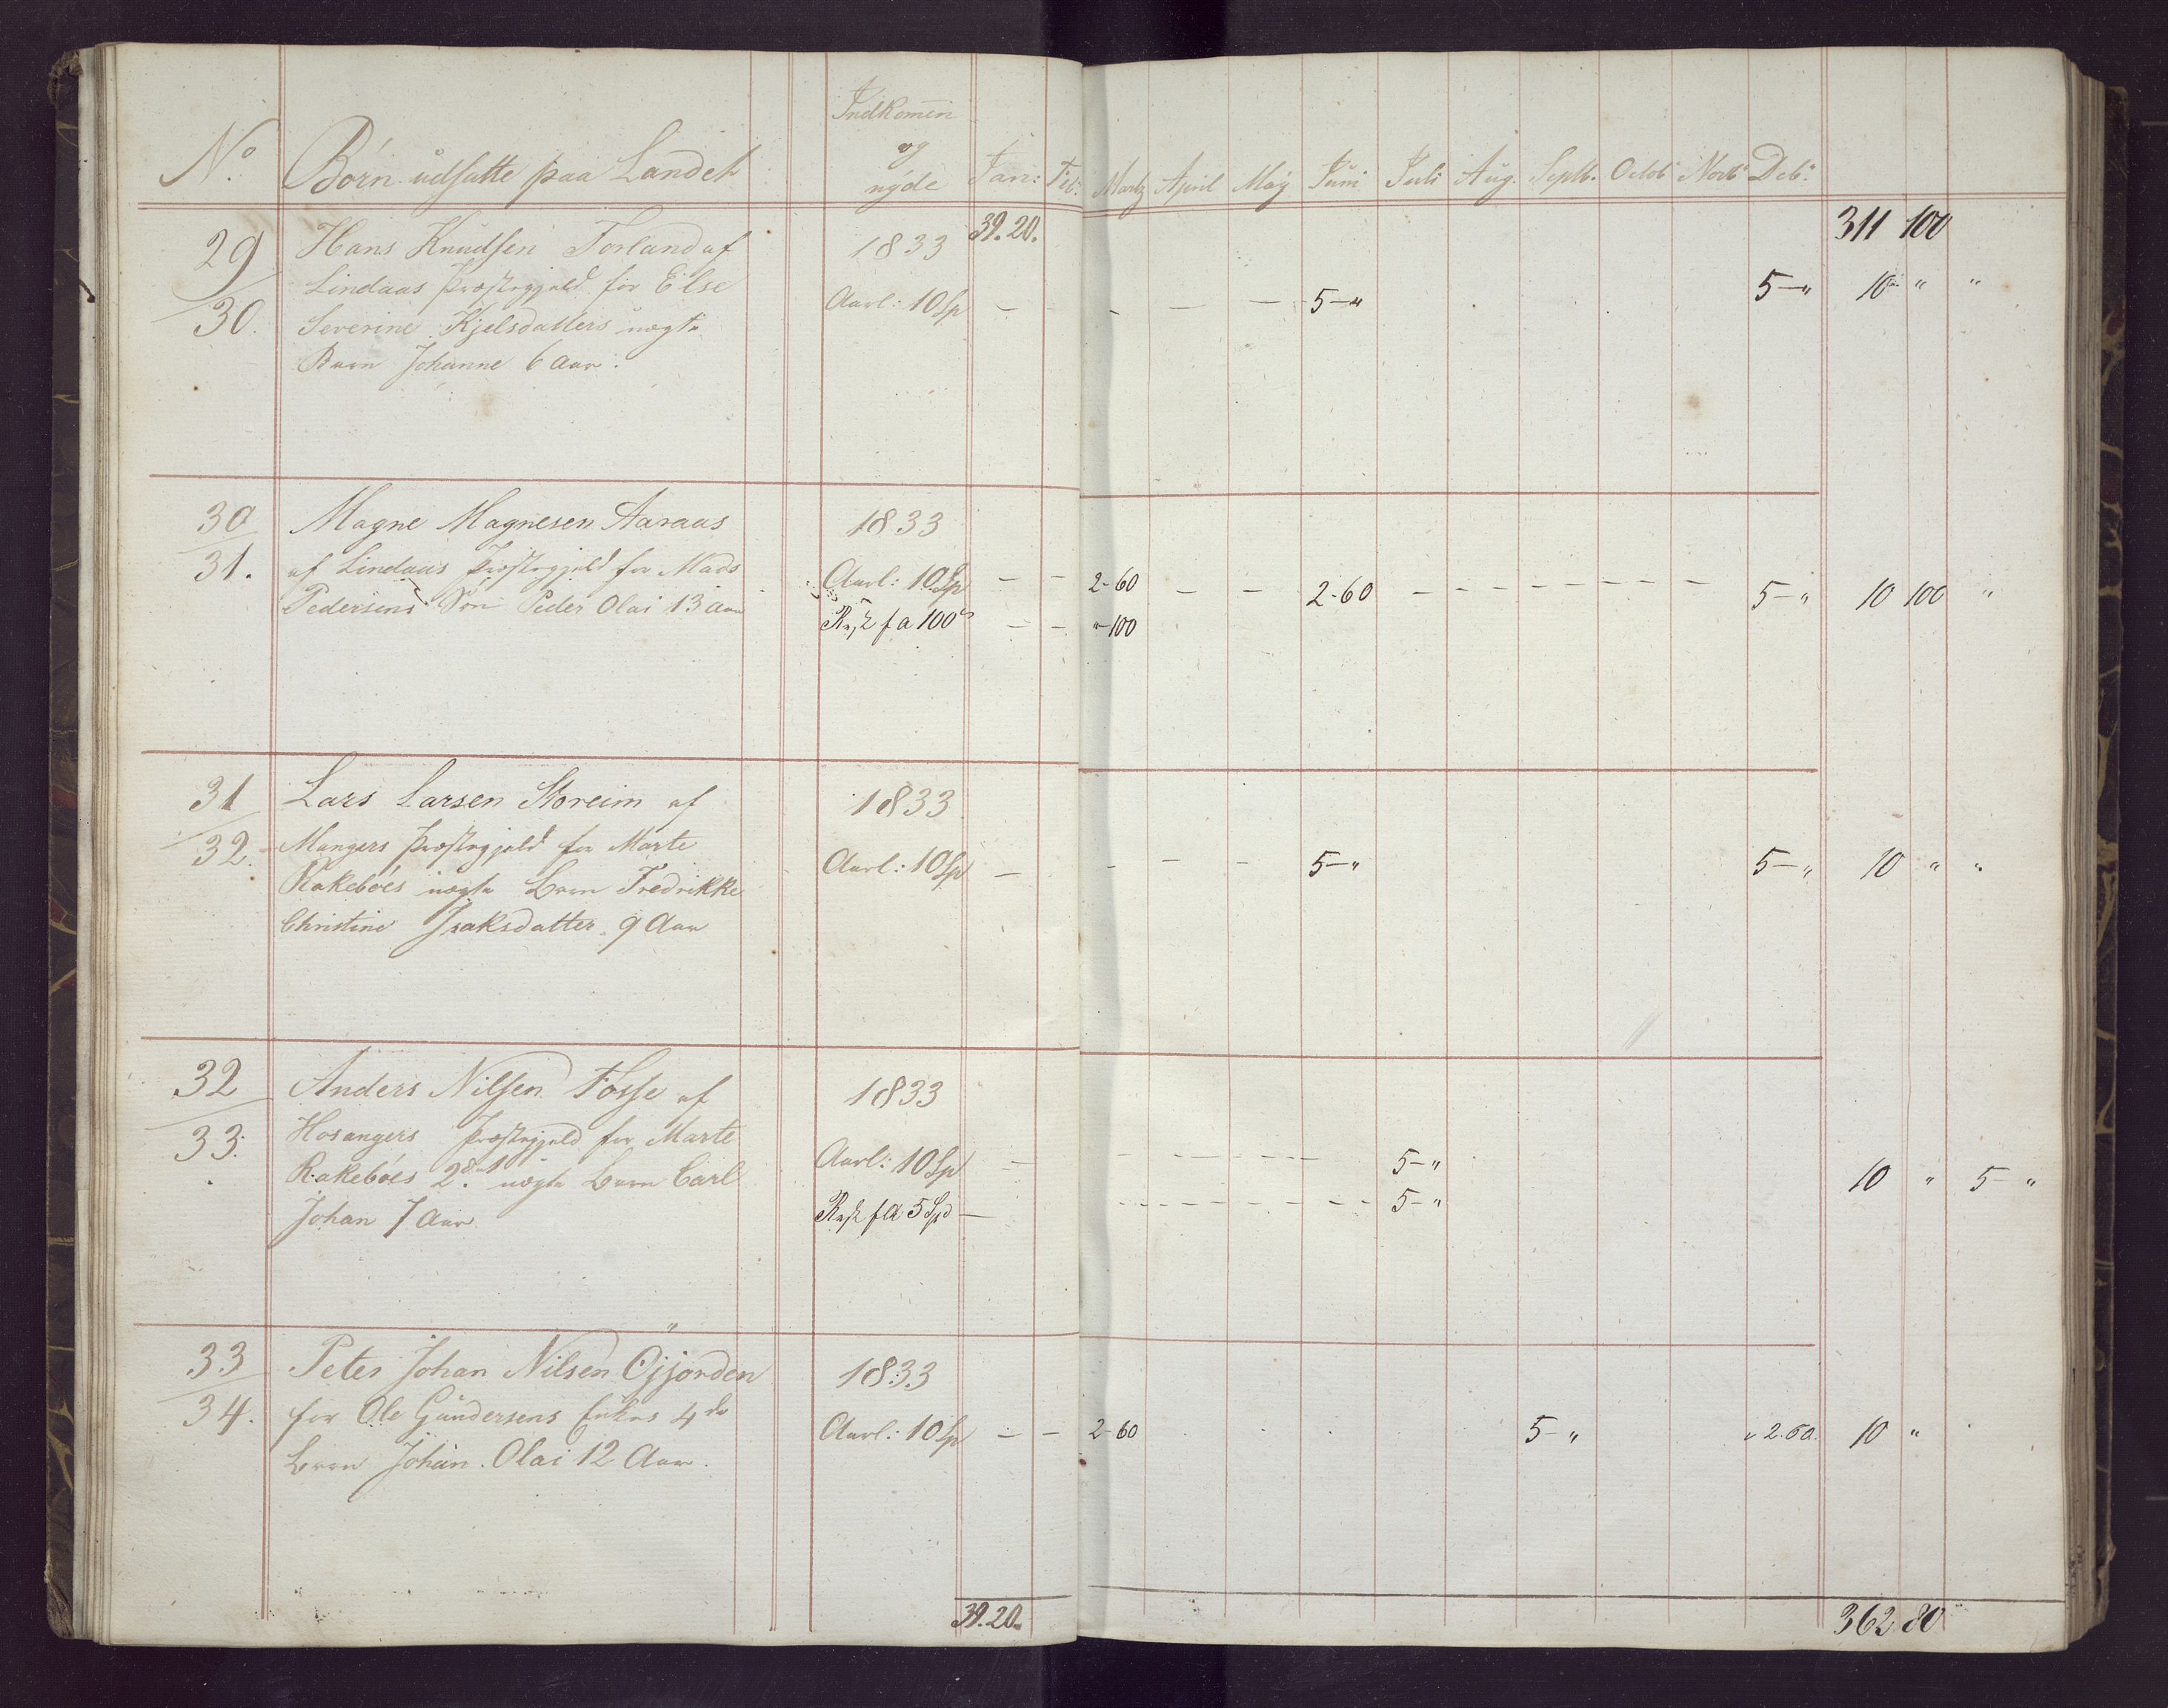 No. Börn udsatte paa Landet Indkomēn og nÿde Jan: Feb: Martz April Maÿ Juni Juli Aug. Septb. Octob Novb Deb:
39.20. 311 100
29 Hans Knudsen Torland af 1833
Lindaas Præstegjeld for Else Aarl: 10 Sp — - — — 5-" 5-" 10 " "
30. Severine Kjelsdatters uægte
Barn Johanne 6 Aar.
30 Magne Magnesen Aaraas 1833
31. af Lindaas Præstegjeld for Mads Aarl: 10 Sp — — 2-60 — — 2-60 — — — — — — — — 5-" 10 100 "
Pedersens Sön Peder Olai 13 Aar Rest f a 100 s — — "-100
31 Lars Larsen Storeim af 1833
32. Mangers Præstegjeld for Marte Aarl: 10 Sp — - — — 5-" 5-" 10 " "
Rakeböes uægte Barn Fredrikke
Christine Isaksdatter 9 Aar
32 Anders Nilsen Fosse af 1833
33. Hosangers Præstegjeld for Marte Aarl: 10 Sp — - - - - - - 5-" 10 " 5-"
Rakeböes 2det uægte Barn Carl Rest f a 5 Spd — - - - - - - - - 5-"
Johan 7 Aar
33 Peter Johan Nilsen Öjjorden 1833
34. for Ole Gundersens Enkes 4de Aarl: 10 Sp — — 2-60 5-" " 2.60. 10 "
Barn Johan Olai 12 Aar.
39.20. 362 80